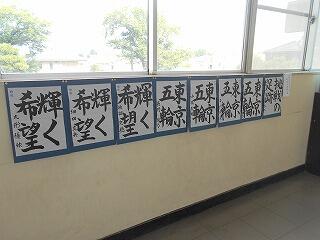 輝く
希望
輝く
希望
輝く
希望
東京
五輪
東京
五輪
東京
五輪
東京
五輪